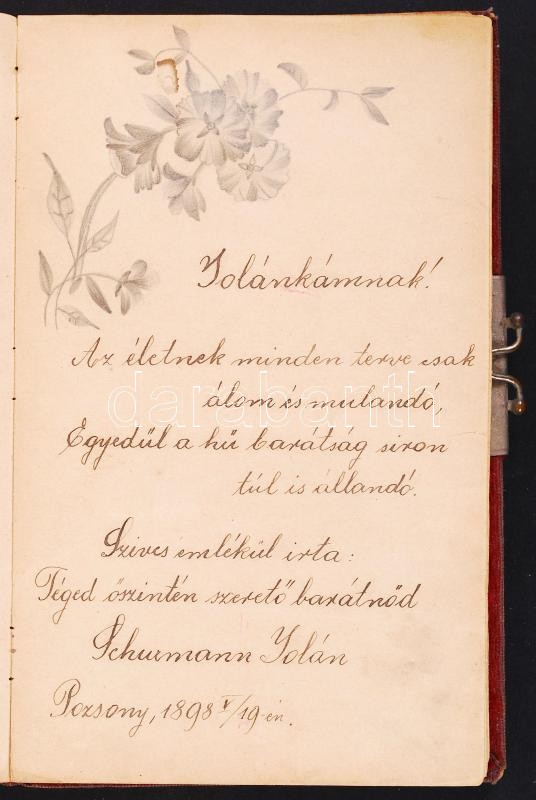 Jolánkámnak!
Az életnek minden terve csak
álom és mulandó,
Egyedül a hű barátság siron
túl is állandó.
Szives emlékül irta:
Téged őszintén szerető barátnőd
Schurmann Jolán
Pozsony, 1898 V/19-én.
darabanth